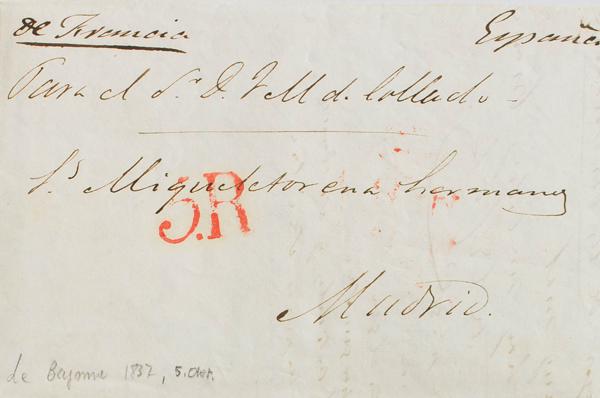 de Francia España
Para el Sr. D. J. M. de Collado
Srs Migueletorena hermanos
5.R
Madrid.
de Bayonne 1837, 5. Oct.